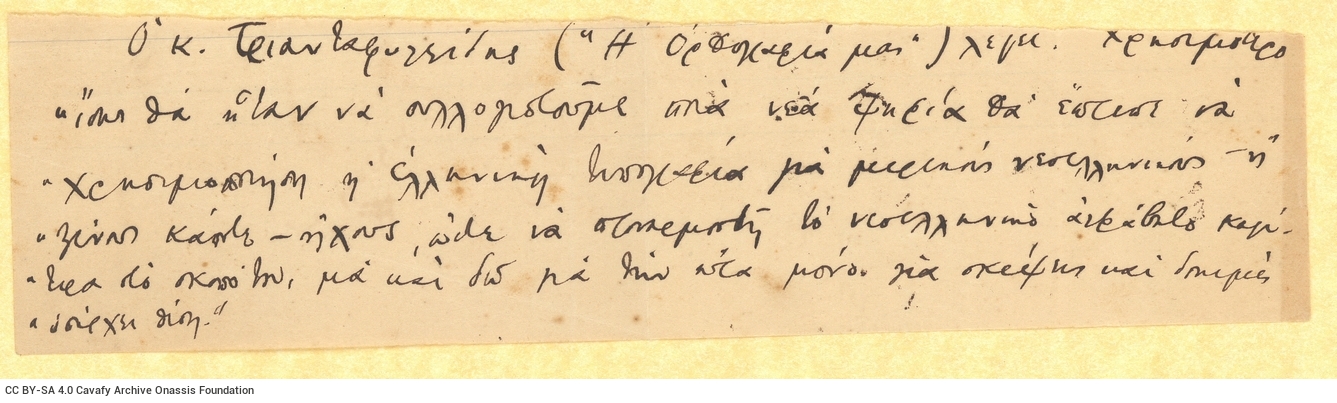 Ὁ κ. Τριανταφυλλίδης ("Ἡ Ὀρθογραφία μας") λέγει. Χρησιμώτερο
"ἴσως θὰ ἦταν νὰ συλλογιστοῦμε ποιὰ νέα ψηφία θὰ ἔπρεπε νὰ
"χρησιμοποιήση ἡ ἑλληνικὴ τυπογραφία γιὰ μερικοὺς νεοελληνικοὺς – ἢ
"ξένους κάποτε – ἤχους, ὥστε νὰ προσαρμοστῆ τὸ νεοελληνικὸ ἀλφάβητο καλλί-
"τερα στὸ σκοπό του, μὰ καὶ δῶ γιὰ τὴν ὥρα μόνο γιὰ σκέψεις καὶ δοκιμὲς
"ὑπάρχει θέση."
CC BY-SA 4.0 Cavafy Archive Onassis Foundation